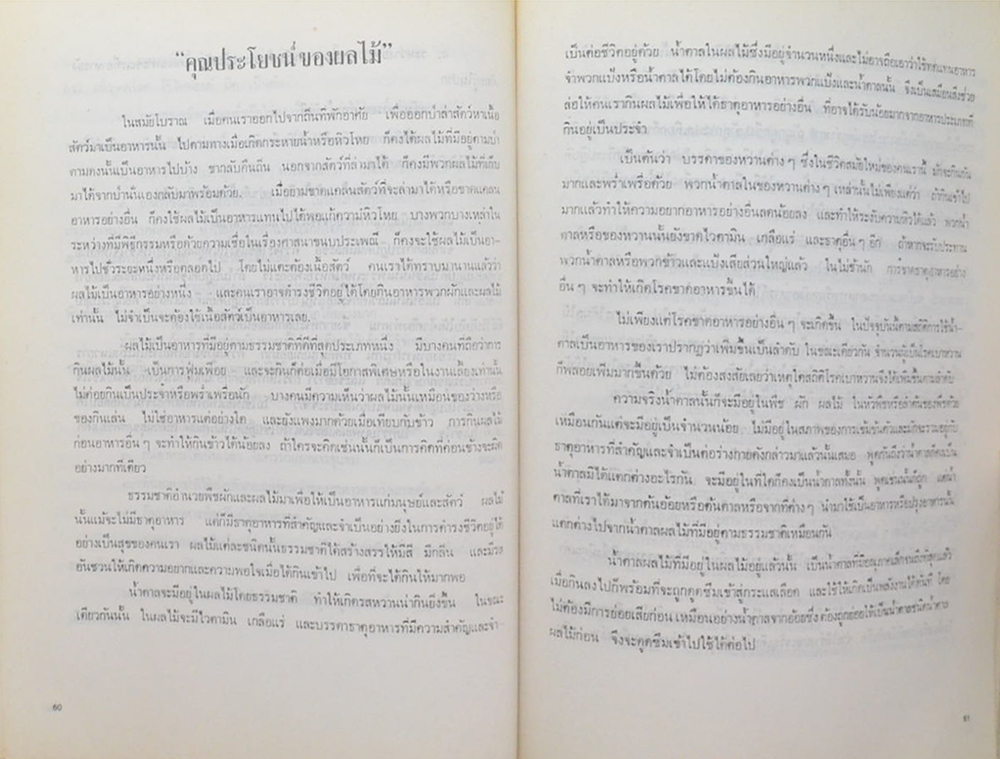 “คุณประโยชน์ของผลไม้”
ในสมัยโบราณ เมื่อคนเราออกไปจากถิ่นที่พักอาศัย เพื่อออกป่าล่าสัตว์หาเนื้อ
สัตว์มาเป็นอาหารนั้น ไปตามทางเมื่อเกิดกระหายน้ำหรือหิวโหย ก็คงได้ผลไม้ที่มีอยู่ตามป่า
ตามดงนั้นเป็นอาหารไปบ้าง ขากลับคืนถิ่น นอกจากสัตว์ที่ล่ามาได้ ก็คงมีพวกผลไม้ที่เก็บ
มาได้จากป่านั่นเองกลับมาพร้อมด้วย. เมื่อยามขาดแคลนสัตว์ที่จะล่ามาได้หรือขาดแคลน
อาหารอย่างอื่น ก็คงใช้ผลไม้เป็นอาหารแทนไปได้พอแก้ความหิวโหย บางพวกบางเหล่าใน
ระหว่างที่มีพิธีกรรมหรือด้วยความเชื่อในเรื่องศาสนาขนบประเพณี ก็คงจะใช้ผลไม้เป็นอา-
หารไปชั่วระยะหนึ่งหรือตลอดไป โดยไม่แตะต้องเนื้อสัตว์ คนเราได้ทราบมานานแล้วว่า
ผลไม้เป็นอาหารอย่างหนึ่ง และคนเราอาจดำรงชีวิตอยู่ได้โดยกินอาหารพวกผักและผลไม้
เท่านั้น ไม่จำเป็นจะต้องใช้เนื้อสัตว์เป็นอาหารเลย.
ผลไม้เป็นอาหารที่มีอยู่ตามธรรมชาติที่ดีที่สุดประเภทหนึ่ง มีบางคนที่ถือว่าการ
กินผลไม้นั้น เป็นการฟุ่มเฟือย และจะกินก็ต่อเมื่อมีโอกาสพิเศษหรือในงานเลี้ยงเท่านั้น
ไม่ค่อยกินเป็นประจำหรือพร่ำเพรื่อนัก บางคนมีความเห็นว่าผลไม้นั้นเหมือนของว่างหรือ
ของกินเล่น ไม่ใช่อาหารแต่อย่างใด และยังแพงมากด้วยเมื่อเทียบกับข้าว การกินผลไม้
ก่อนอาหารอื่น ๆ จะทำให้กินข้าวได้น้อยลง ถ้าใครจะคิดเช่นนั้นก็เป็นการคิดที่ค่อนข้างจะผิด
อย่างมากทีเดียว
ธรรมชาติอำนวยพืชผักและผลไม้มาเพื่อให้เป็นอาหารแก่มนุษย์และสัตว์ ผลไม้
นั้นแม้จะไม่มีธาตุอาหาร แต่ก็มีธาตุอาหารที่สำคัญและจำเป็นอย่างยิ่งในการดำรงชีวิตอยู่ได้
อย่างเป็นสุขของคนเรา ผลไม้แต่ละชนิดนั้นธรรมชาติได้สร้างสรรให้มีสี มีกลิ่น และมีรส
อันชวนให้เกิดความอยากและความพอใจเมื่อได้กินเข้าไป เพื่อที่จะได้กินให้มากพอ
น้ำตาลจะมีอยู่ในผลไม้โดยธรรมชาติ ทำให้เกิดรสหวานน่ากินยิ่งขึ้น ในขณะ
เดียวกันนั้น ในผลไม้จะมีไวตามิน เกลือแร่ และบรรดาธาตุอาหารที่มีความสำคัญและจำ-
60
เป็นต่อชีวิตอยู่ด้วย น้ำตาลในผลไม้ซึ่งมีอยู่จำนวนหนึ่งและไม่อาจถือเอาว่าใช้ทดแทนอาหาร
จำพวกแป้งหรือน้ำตาลได้โดยไม่ต้องกินอาหารพวกแป้งและน้ำตาลนั้น จึงเป็นเสมือนสิ่งช่วย
ล่อให้คนเรากินผลไม้เพื่อให้ได้ธาตุอาหารอย่างอื่น ที่อาจได้รับน้อยมากจากอาหารประเภทที่
กินอยู่เป็นประจำ
เป็นต้นว่า บรรดาของหวานต่าง ๆ ซึ่งในชีวิตสมัยใหม่ของคนเรานี้ มักจะกินกัน
มากและพร่ำเพรื่อด้วย พวกน้ำตาลในของหวานต่าง ๆ เหล่านั้นไม่เพียงแต่ว่า ถ้ากินเข้าไป
มากแล้วทำให้ความอยากอาหารอย่างอื่นลดน้อยลง และทำให้ระงับความหิวได้แล้ว พวกน้ำ
ตาลหรือของหวานนั้นยังขาดไวตามิน เกลือแร่ และธาตุอื่น ๆ อีก ถ้าหากจะรับประทาน
พวกน้ำตาลหรือพวกข้าวและแป้งเสียส่วนใหญ่แล้ว ในไม่ช้านัก การขาดธาตุอาหารอย่าง
อื่น ๆ จะทำให้เกิดโรคขาดอาหารขึ้นได้.
ไม่เพียงแต่โรคขาดอาหารอย่างอื่น ๆ จะเกิดขึ้น ในปัจจุบันนี้ตามสถิติการใช้น้ำ-
ตาลเป็นอาหารของเราปรากฏว่าเพิ่มขึ้นเป็นลำดับ ในขณะเดียวกัน จำนวนผู้เป็นโรคเบาหวาน
ก็พลอยเพิ่มมากขึ้นด้วย ไม่ต้องสงสัยเลยว่าเหตุใดสถิติโรคเบาหวานจึงได้เพิ่มขึ้นตามลำดับ
ความจริงน้ำตาลนั้นก็จะมีอยู่ในพืช ผัก ผลไม้ ในหัวพืชหรือลำต้นของพืชด้วย
เหมือนกันแต่จะมีอยู่เป็นจำนวนน้อย ไม่มีอยู่ในสภาพของการเข้มข้นตัวและมักจะรวมอยู่กับ
ธาตุอาหารที่สำคัญและจำเป็นต่อร่างกายดังกล่าวมาแล้วนั้นเสมอ พูดกันถึงว่าน้ำตาลก็คงเป็น
น้ำตาลมิได้แตกต่างอะไรกัน จะมีอยู่ในที่ใดก็คงเป็นน้ำตาลทั้งนั้น พูดเช่นนั้นก็ถูก แต่น้ำ
ตาลที่เราได้มาจากต้นอ้อยหรือต้นตาลหรือจากที่ต่าง ๆ นำมาใช้เป็นอาหารหรือปรุงอาหารนั้น
แตกต่างไปจากน้ำตาลผลไม้ที่มีอยู่ตามธรรมชาติเหมือนกัน
น้ำตาลผลไม้ที่มีอยู่ในผลไม้อยู่แล้วนั้น เป็นน้ำตาลที่มีอณุภาคเล็กจนถึงที่สุดแล้ว
เมื่อกินลงไปก็พร้อมที่จะถูกดูดซึมเข้าสู่กระแสเลือด และใช้ให้เกิดเป็นพลังงานได้ทันที โดย
ไม่ต้องมีการย่อยเสียก่อน เหมือนอย่างน้ำตาลจากอ้อยซึ่ง ต้องถูกย่อยให้เป็นน้ำตาลชนิดน้ำตาล
ผลไม้ก่อน จึงจะดูดซึมเข้าไปใช้ได้ต่อไป
61